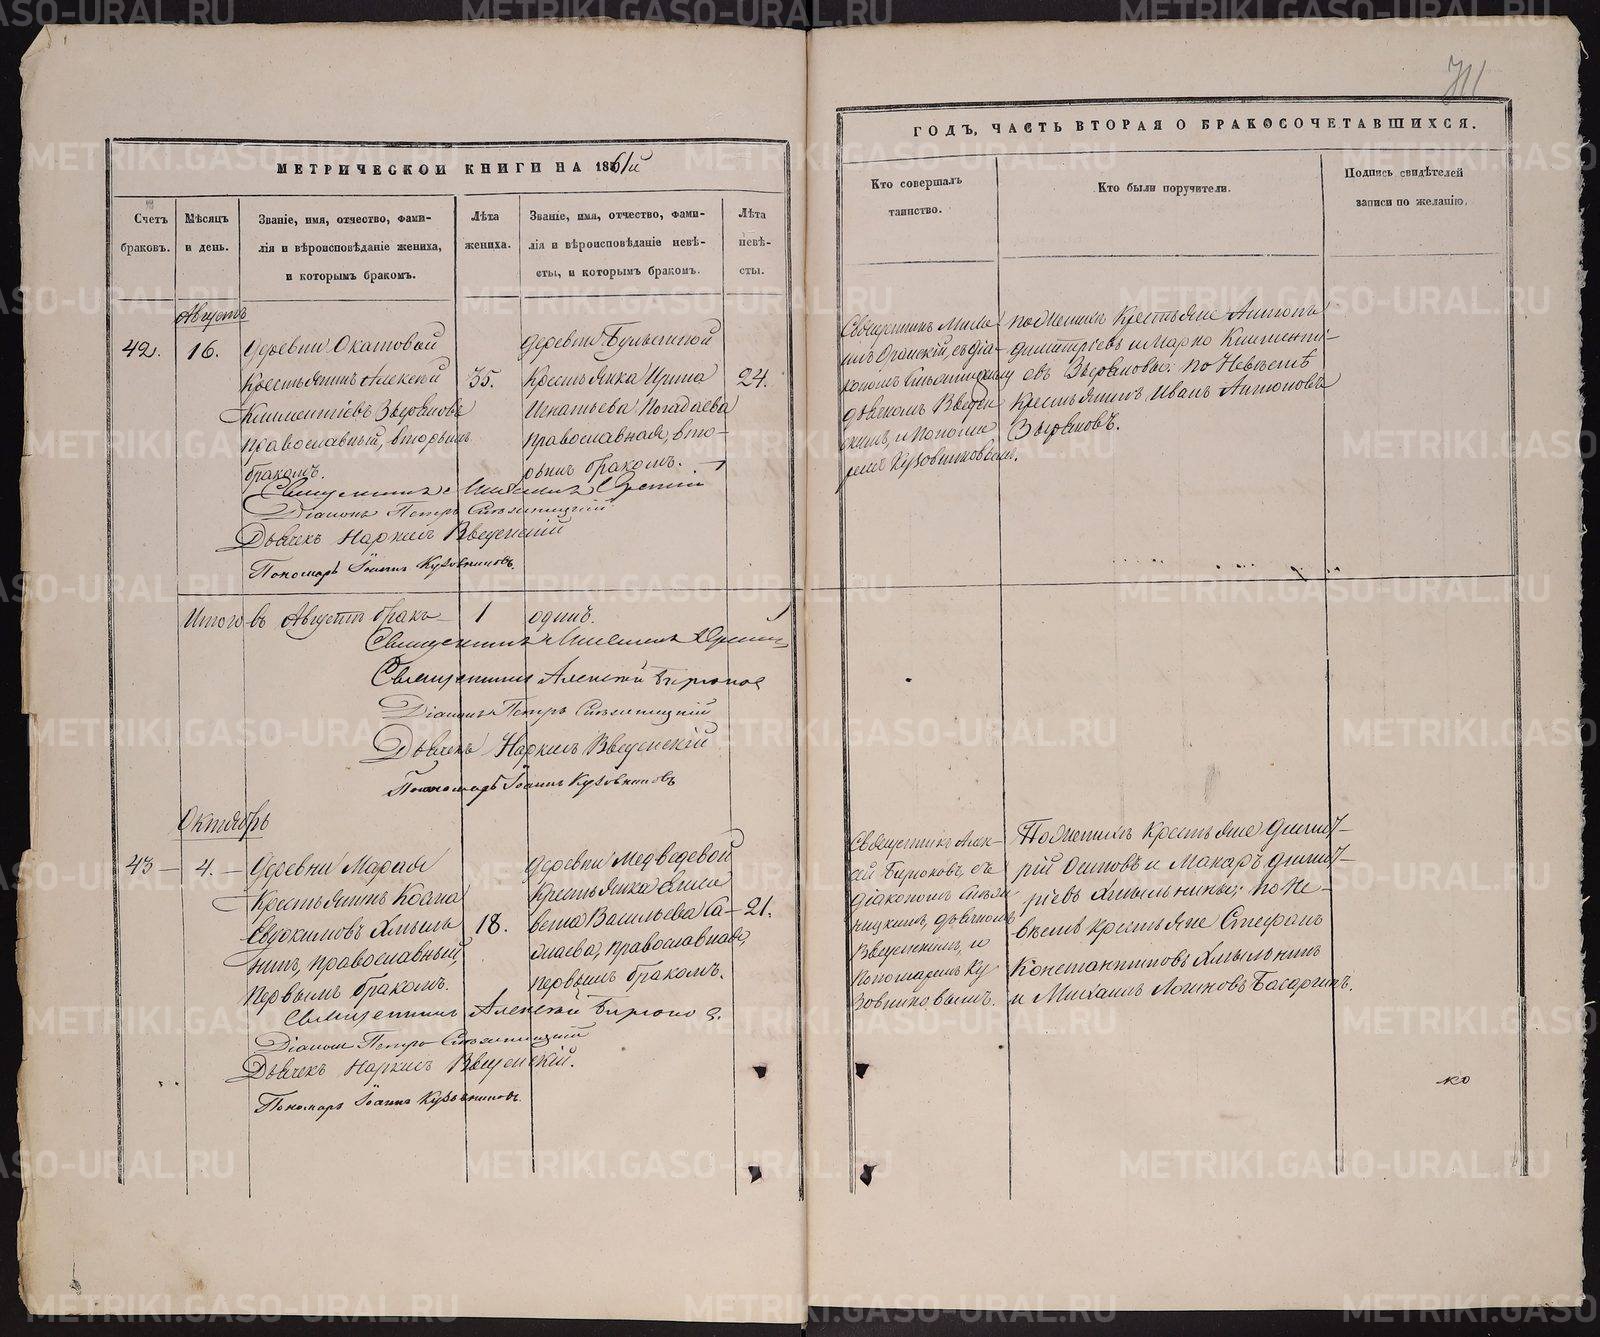 711
МЕТРИЧЕСКОЙ КНИГИ НА 1861й
Счетъ браковъ.
Мѣсяцъ и день.
Званіе, имя, отчество, фами-
лія и вѣроисповѣданіе жениха,
и которымъ бракомъ.
Лѣта жениха.
Званіе, имя, отчество, фами-
лія и вѣроисповѣданіе невѣ-
сты, и которымъ бракомъ.
Лѣта невѣ-
сты.
Августъ
42. 16.
Деревни Окатовой
Крестьянинъ Алексѣй
Климентіевъ Зыряновъ
православный, вторымъ
бракомъ.
35.
деревни
Крестьянка Ирина
Игнатьева Погадаева
православная, вто-
рымъ бракомъ.
24.
Священникъ
Діаконъ Петръ
Дьячекъ Наркисъ Введенскій
Пономарь Іоаннъ Кузовниковъ.
Итого въ Августѣ бракъ 1 одинъ.
Священникъ
Священникъ Алексѣй Бирюковъ
Діаконъ Петръ
Дьячекъ Наркисъ Введенскій
Пономарь Іоаннъ Кузовниковъ
Октябрь
43 — 4. —
Деревни Марая
Крестьянинъ Козма
Евдокимовъ Хмыль-
нинъ, православный,
первымъ бракомъ.
18.
деревни Медведевой
Крестьянка Елиса
вета Васильева Са-
православная,
первымъ бракомъ.
21.
Священникъ Алексѣй Бирюковъ.
Діаконъ Петръ
Дьячекъ Наркисъ Введенскій.
Пономарь Іоаннъ Кузовниковъ.
ГОДЪ, ЧАСТЬ ВТОРАЯ О БРАКОСОЧЕТАВШИХСЯ.
Кто совершалъ
таинство.
Кто были поручители.
Подпись свидѣтелей
записи по желанію.
Священникъ
съ діа-
кономъ
дьячкомъ Введен
скимъ, и понома
ремъ Кузовниковымъ.
по женихѣ Крестьяне Антонъ
Димитріевъ и Марко Климентіе-
въ Зыряновы; по Невѣстѣ
Крестьянинъ Иванъ Антоновъ
Зыряновъ.
Священникъ Алек-
сѣй Бирюковъ, съ
діакономъ
дьячкомъ
Введенскимъ, и
Пономаремъ Ку
зовниковымъ.
По женихѣ Крестьяне Димит-
рій Осиповъ и Макаръ Димит-
ріевъ Хмыльнины; по не-
вѣстѣ крестьяне Стефанъ
Константиновъ Хмыльнинъ
и Михаилъ Логиновъ Басаргинъ.
ко
METRIKI.GASO-URAL.RU